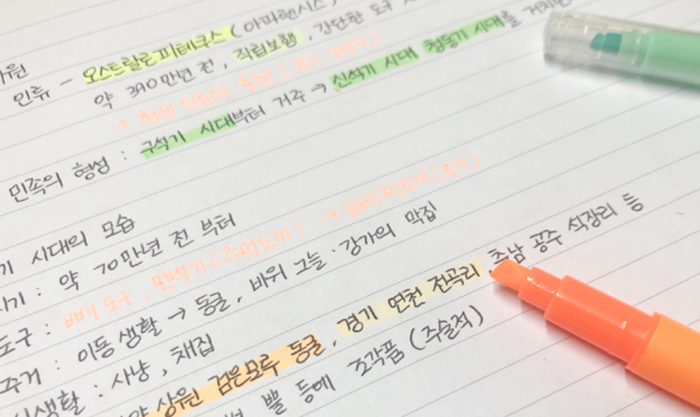 인류 - 오스트랄로피테쿠스 (아파렌시스)
약 390만년 전, 직립보행, 간단한 도구 사
민족의 형성 : 구석기 시대부터 거주 → 신석기 시대 청동기 시대를 거치면
기 시대의 모습
시기 : 약 70만년 전 부터
도구 : 뼈 도구, 뗀석기 (주먹도끼) →
주거 : 이동 생활 → 동굴, 바위 그늘 · 강가의 막집
생활 : 사냥, 채집
상원 검은모루 동굴, 경기 연천 전곡리, 충남 공주 석장리 등
뿔 등에 조각품 (주술적)